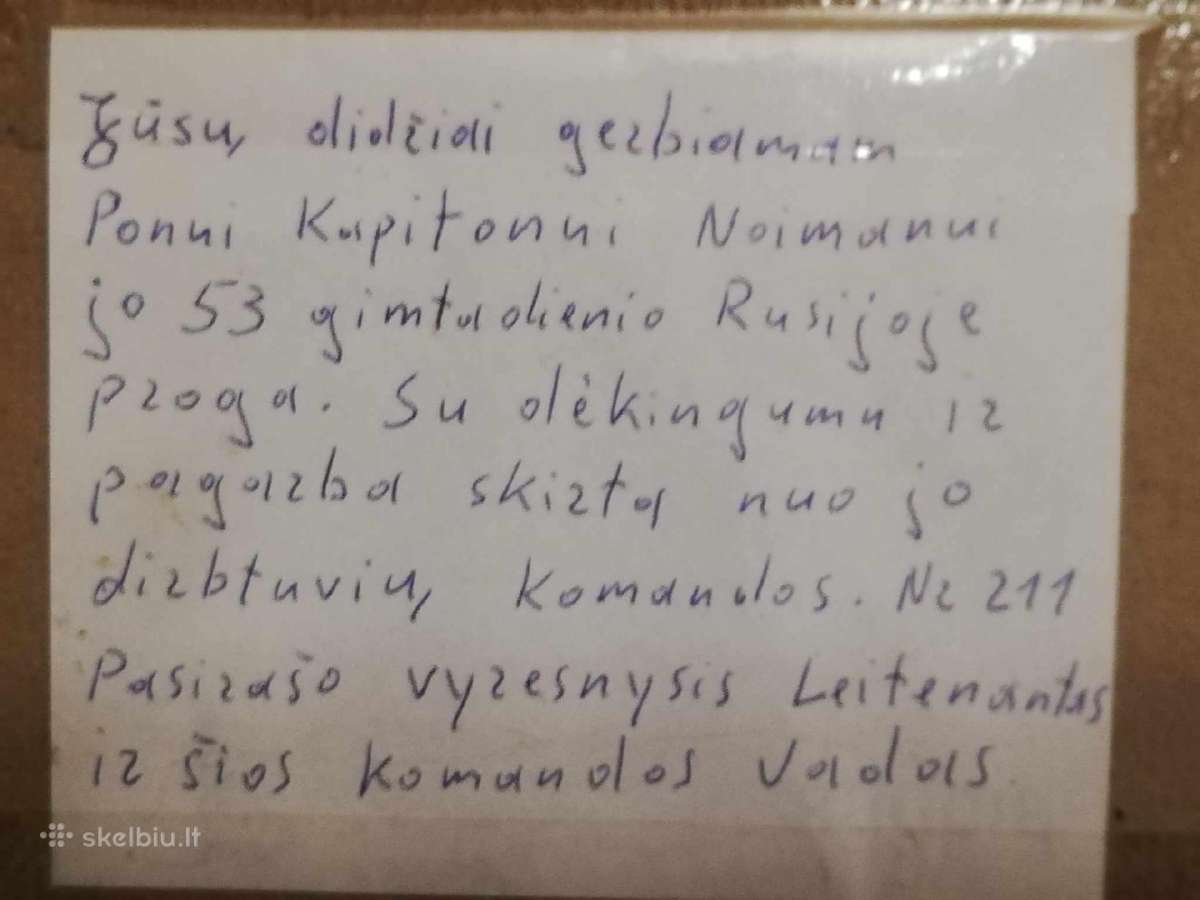 Jūsų didžiai gerbiamam
Ponui Kapitonui Noimanui
jo 53 gimtadienio Rusijoje
proga. Su dėkingumu ir
pagarba skirta nuo jo
dirbtuvių komandos. Nr 211
Pasirašo vyresnysis Leitenantas
ir šios komandos vadas.
skelbiu.lt